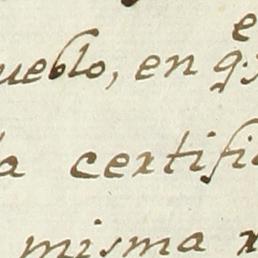 ueblo, en q.e
a certifi
misma